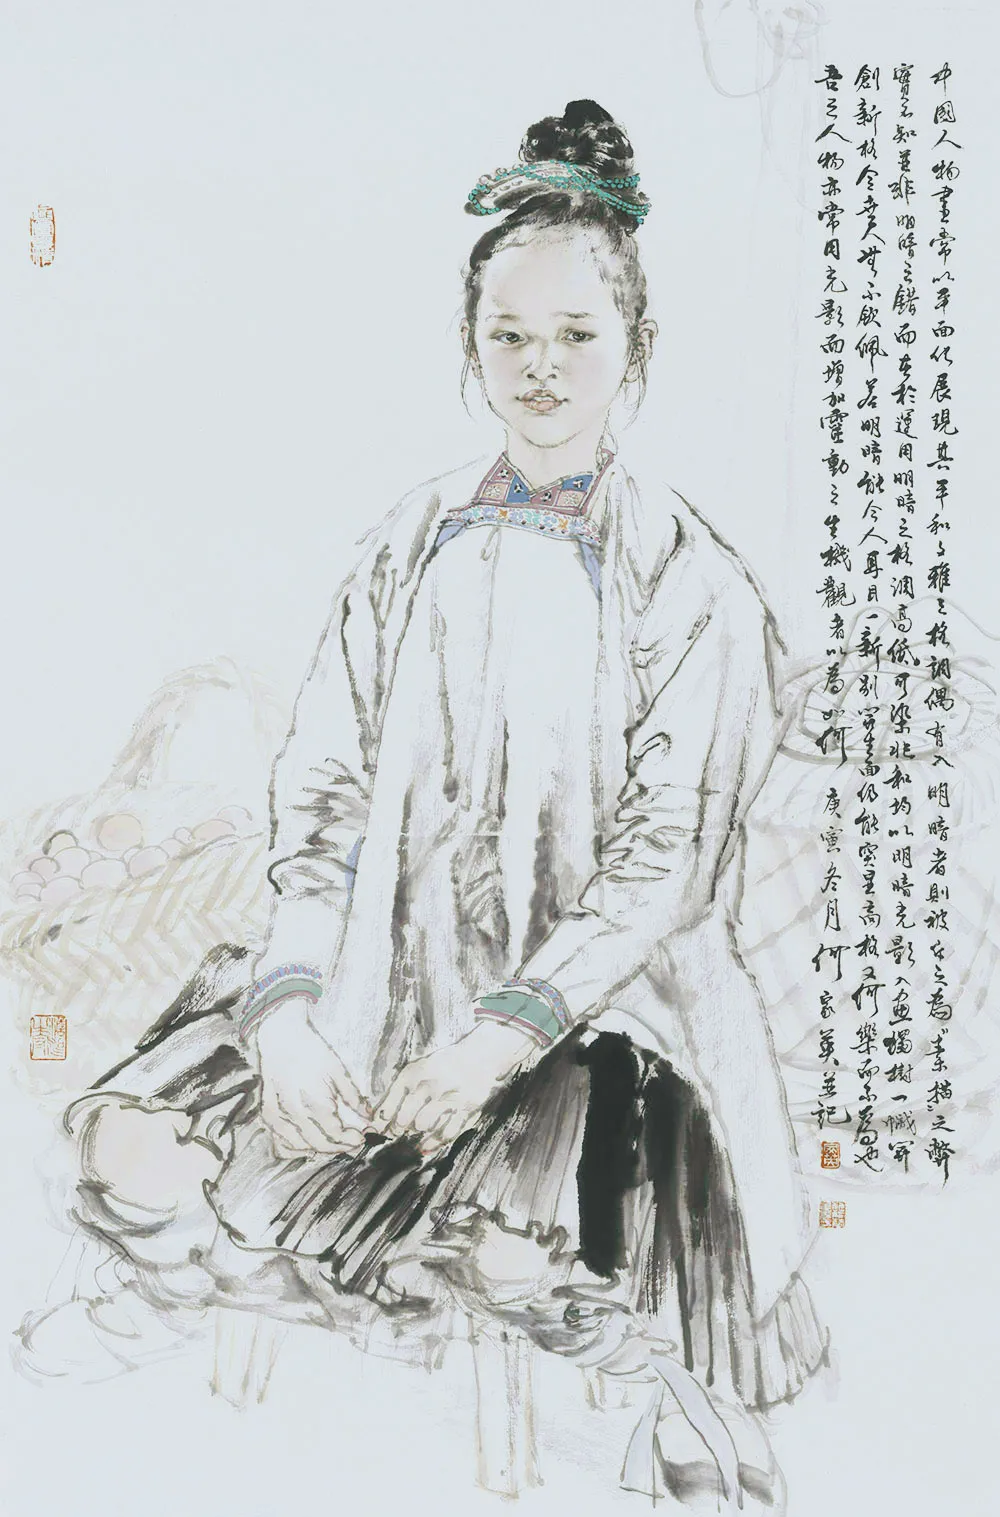 中國人物畫常以平面化展現其平和文雅之格調偶有入明暗者則被斥之為素描之弊
實不知並非明暗之錯而在於運用明暗之格調高低可染兆和均以明暗光影入畫獨樹一幟開
創新格令世人無不欽佩若明暗能令人耳目一新別開生面仍能突呈高格又何樂而不為也
吾之人物亦常用光影而增加靈動之生機觀者以為如何 庚寅冬月何家英並記